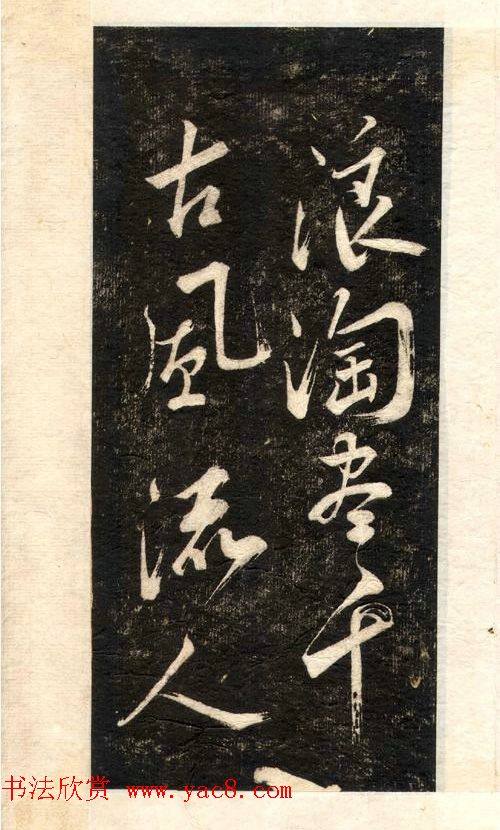 浪淘尽千
古风流人
书法欣赏 www.yac8.com